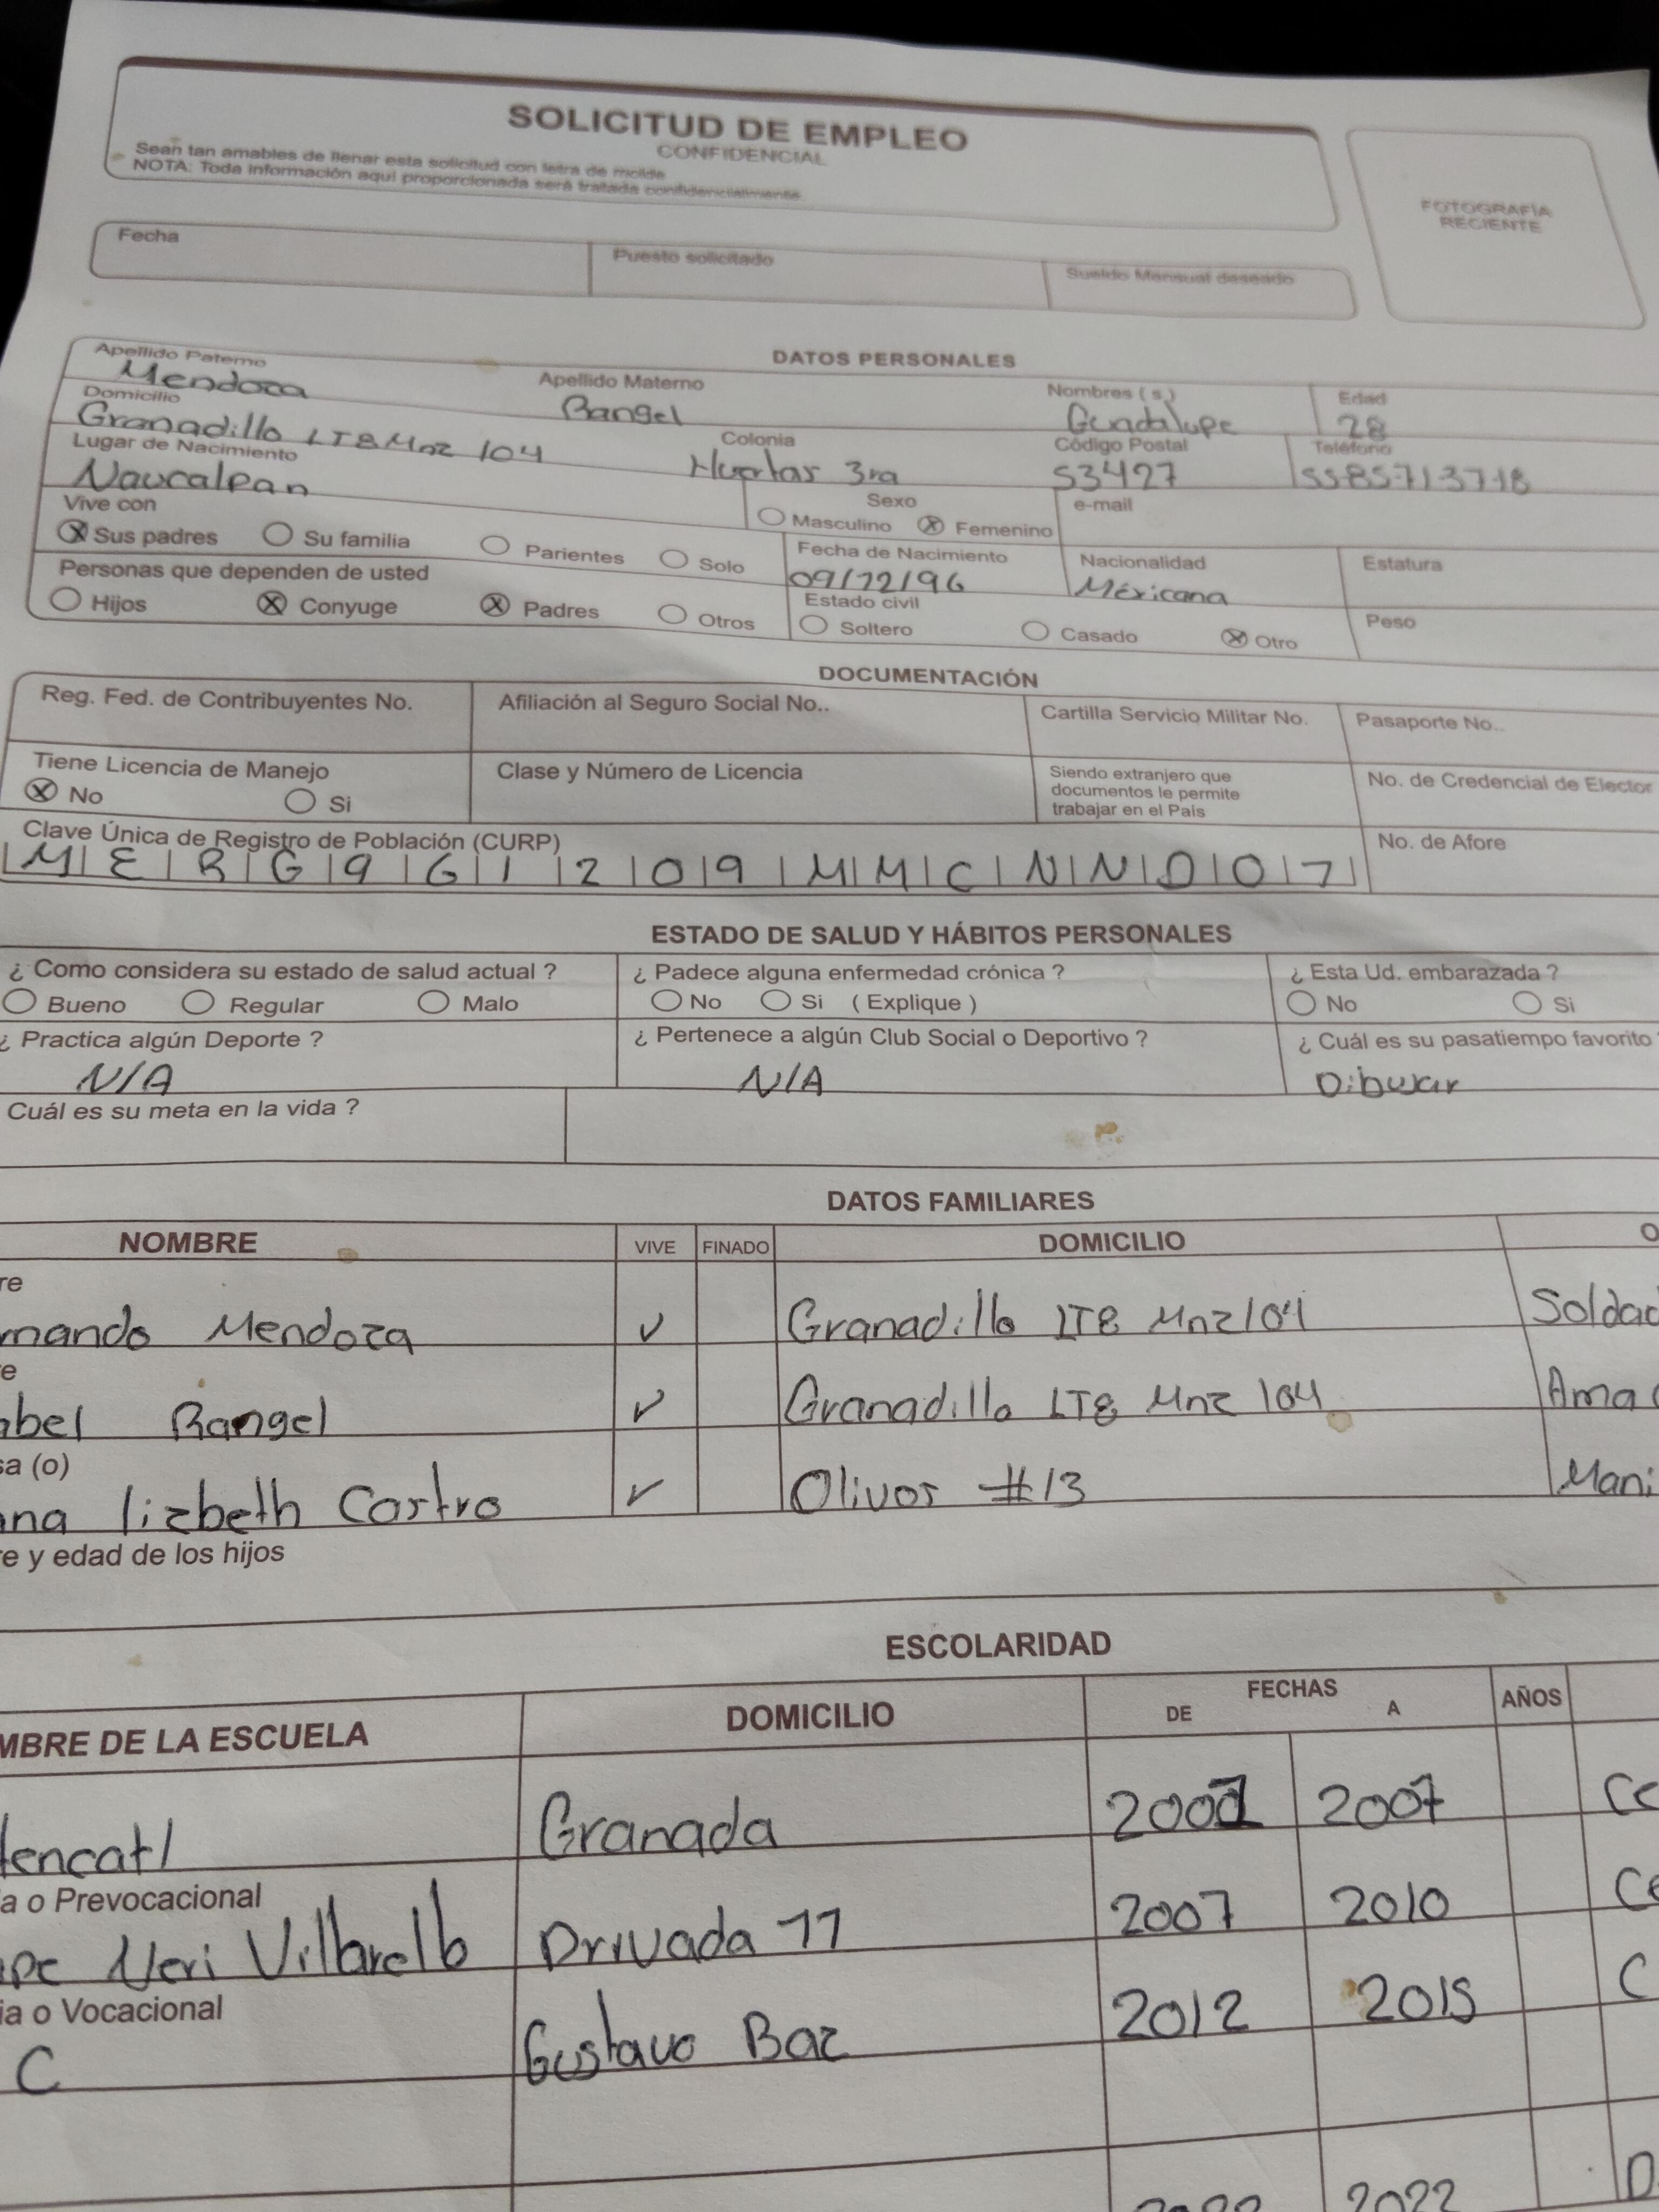 SOLICITUD DE EMPLEO
CONFIDENCIAL
Sean tan amables de llenar esta solicitud con letra de molde
NOTA: Toda información aquí proporcionada será tratada confidencialmente.
FOTOGRAFÍA
RECIENTE
Fecha
Puesto solicitado
Sueldo Mensual deseado
DATOS PERSONALES
Apellido Paterno Apellido Materno Nombres (s) Edad
Mendoza Rangel Guadalupe 28
Domicilio Colonia Código Postal Teléfono
Granadillo LT8 Mnz 104 Huertas 3ra 53427 5585713718
Lugar de Nacimiento Sexo e-mail
Naucalpan Masculino Femenino
Vive con
Sus padres Su familia Parientes Solo
Fecha de Nacimiento Nacionalidad Estatura
09/12/96 Méxicana
Personas que dependen de usted Estado civil Peso
Hijos Conyuge Padres Otros Soltero Casado Otro
DOCUMENTACIÓN
Reg. Fed. de Contribuyentes No. Afiliación al Seguro Social No.. Cartilla Servicio Militar No. Pasaporte No..
Tiene Licencia de Manejo Clase y Número de Licencia
No Si
Siendo extranjero que
documentos le permite
trabajar en el País
No. de Credencial de Elector
Clave Única de Registro de Población (CURP) No. de Afore
MERG961209MMCNND07
ESTADO DE SALUD Y HÁBITOS PERSONALES
¿ Como considera su estado de salud actual ? ¿ Padece alguna enfermedad crónica ? ¿ Esta Ud. embarazada ?
Bueno Regular Malo No Si ( Explique ) No Si
¿ Practica algún Deporte ? ¿ Pertenece a algún Club Social o Deportivo ? ¿ Cuál es su pasatiempo favorito
N/A N/A Dibujar
Cuál es su meta en la vida ?
DATOS FAMILIARES
NOMBRE VIVE FINADO DOMICILIO O
re
mando Mendoza ✓ Granadillo LT8 Mnz 104 Soldad
e
abel Rangel ✓ Granadillo LT8 Mnz 104 Ama
sa (o)
ana lizbeth Castro ✓ Olivos #13 Mani
re y edad de los hijos
ESCOLARIDAD
MBRE DE LA ESCUELA DOMICILIO FECHAS AÑOS
DE A
tencatl Granada 2001 2007 Ce
a o Prevocacional
ipe Neri Villarello Privada 11 2007 2010 Ce
ia o Vocacional
C Gustavo Baz 2012 2015 C
2022 D